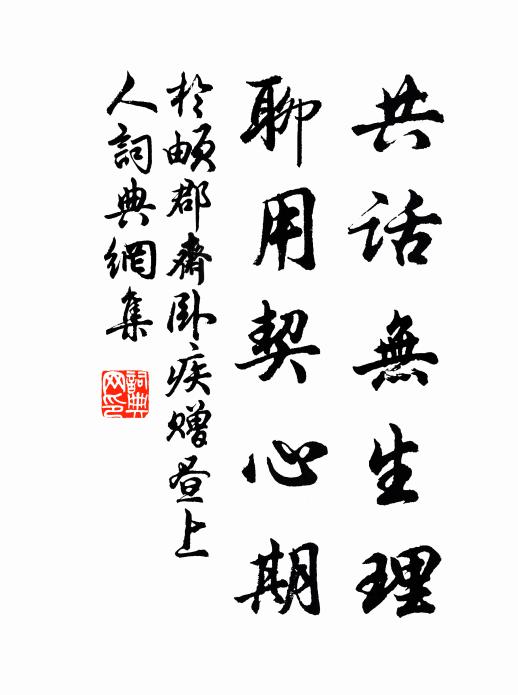 共話無生理
聊用契心期
於頔郡齋臥疾贈晝上
人詞典網集
詞典
网印